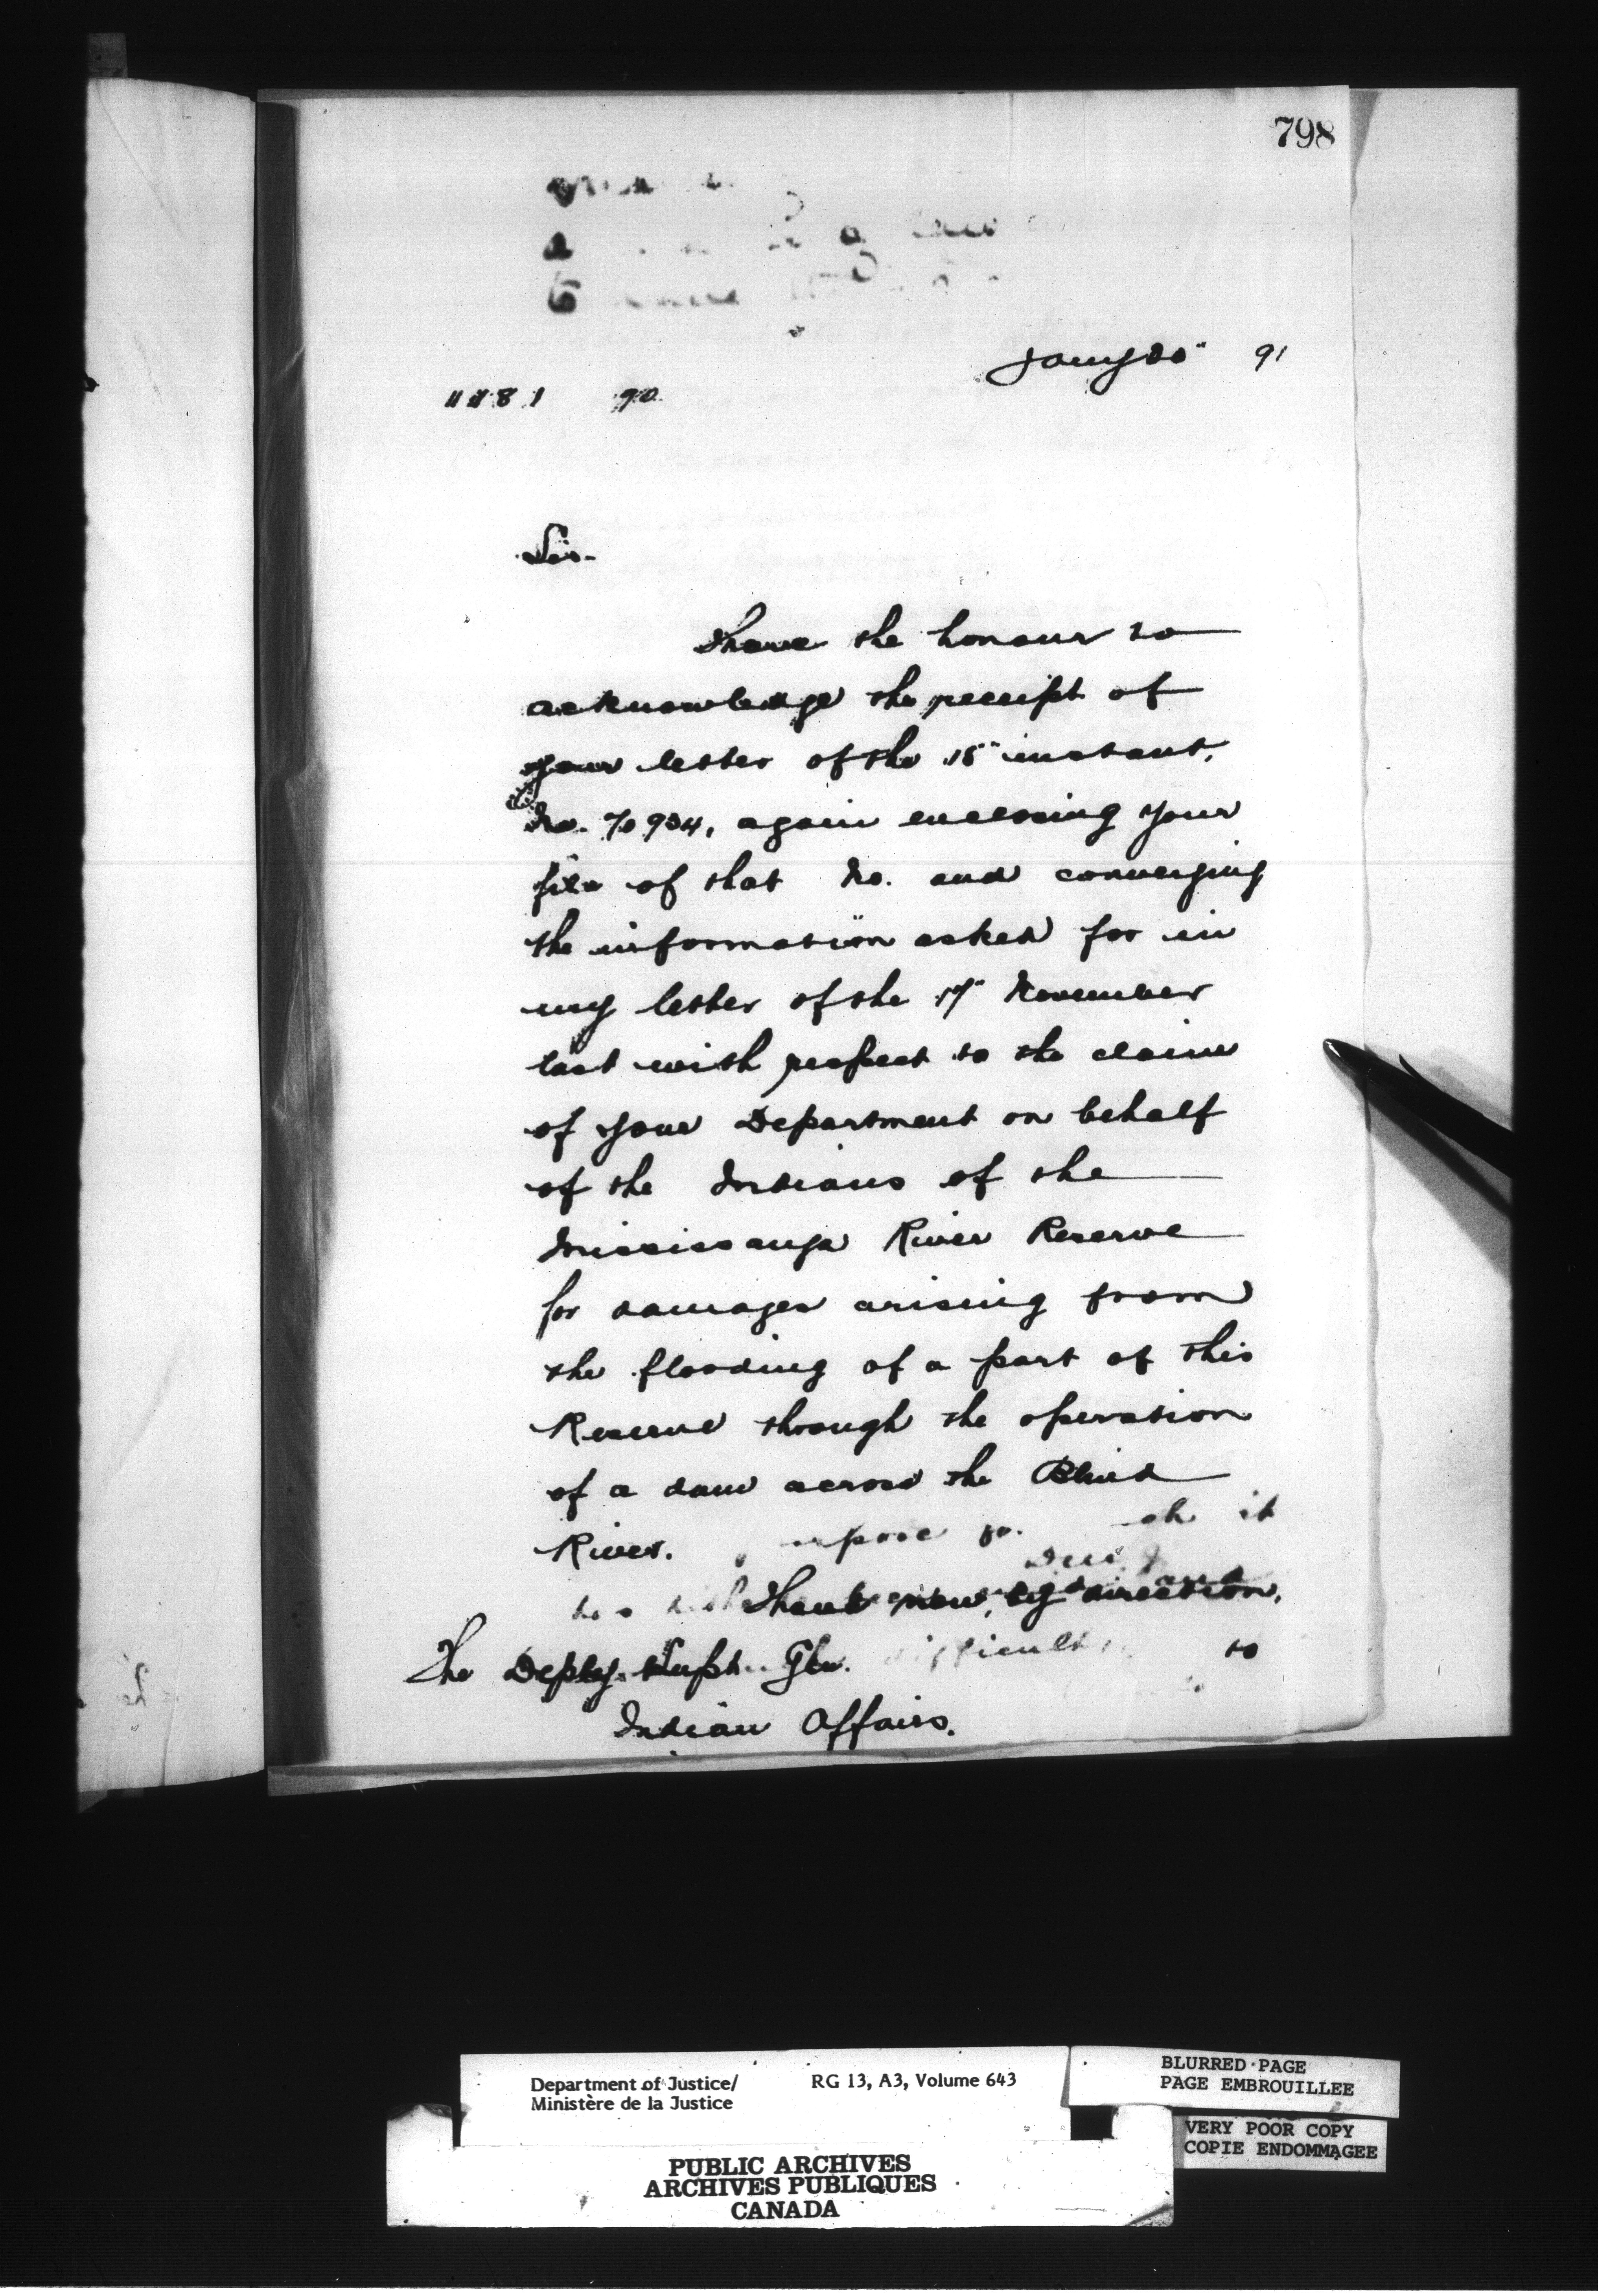 798
91
90
Sir-
I have the honour to
acknowledge the receipt of
your letter of the 15" instant,
No. 70934, again enclosing your
file of that No. and conveying
the information asked for in
my letter of the 17" November
last with respect to the claim
of your Department on behalf
of the Indians of the
Mississauga River Reserve
for damages arising from
the flooding of a part of this
Reserve through the operation
of a dam across the Blind
River.
I have now, by direction,
to
The Deputy Supt. Gen.
Indian Affairs.
Department of Justice/
Ministère de la Justice
RG 13, A3, Volume 643
BLURRED PAGE
PAGE EMBROUILLEE
VERY POOR COPY
COPIE ENDOMMAGEE
PUBLIC ARCHIVES
ARCHIVES PUBLIQUES
CANADA